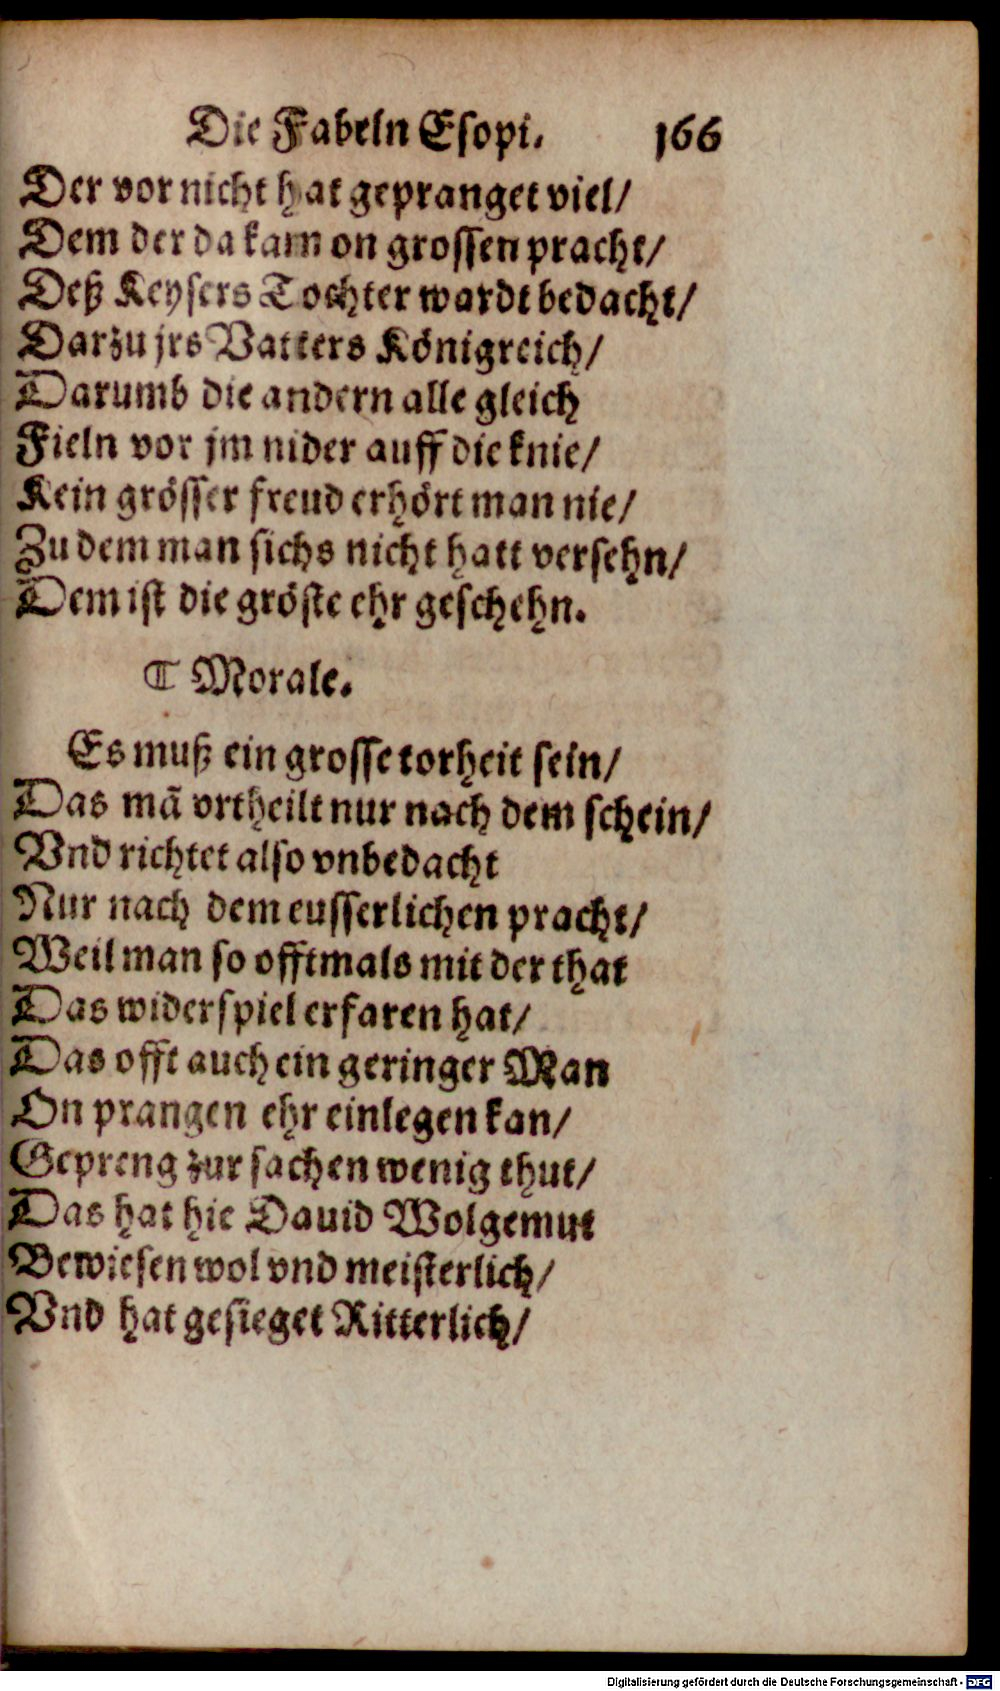 Die Fabeln Esopi. 166
Der vor nicht hat gepranget viel/
Dem der da kam on grossen pracht/
Deß Keysers Tochter wardt bedacht/
Darzu jrs Vatters Königreich/
Darumb die andern alle gleich
Fieln vor jm nider auff die knie/
Kein grösser freud erhört man nie/
Zu dem man sichs nicht hatt versehn/
Dem ist die gröste ehr geschehn.
¶ Morale.
Es muß ein grosse torheit sein/
Das mã vrtheilt nur nach dem schein/
Vnd richtet also vnbedacht
Nur nach dem eusserlichen pracht/
Weil man so offtmals mit der that
Das widerspiel erfaren hat/
Das offt auch ein geringer Man
On prangen ehr einlegen kan/
Gepreng zur sachen wenig thut/
Das hat hie Dauid Wolgemut
Bewiesen wol vnd meisterlich/
Vnd hat gesieget Ritterlich/
Digitalisierung gefördert durch die Deutsche Forschungsgemeinschaft - DFG